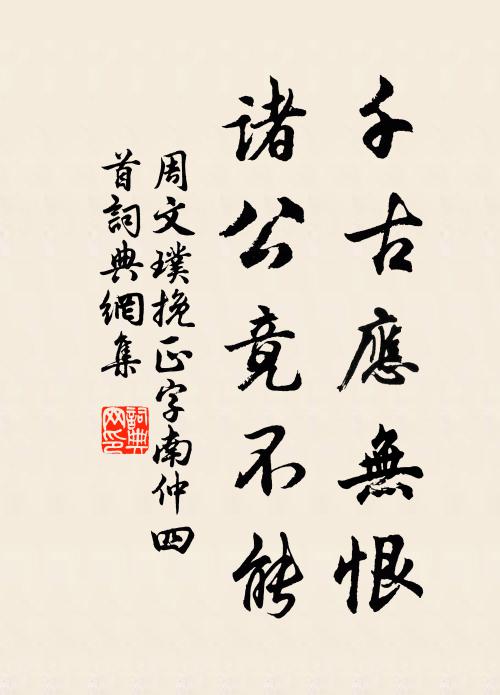 千古應無恨
諸公竟不能
周文璞挽正字南仲四
首詞典網集
詞典
网印